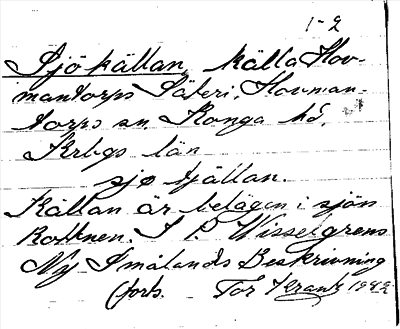 1-2
Sjökällan, källa Hov-
mantorps Säteri, Hovman-
torps sn. Konga hd.
Krbgs län
sjø tjällan.
Källan är belägen i sjön
Rottnen. I P. Wisselgrens
Ny Smålands Beskrivning
(forts. Tor Krantz 1982